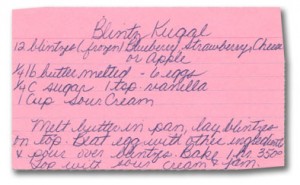 Blintz Kugal
12 blintzes (frozen) Blueberry, Strawberry, Cheese
or Apple
1/4 lb butter melted - 6 eggs
1/4 C sugar 1 tsp vanilla
1 Cup Sour Cream
Melt butter in pan, lay blintzes
on top. Beat egg with other ingredients
& pour over blintzes. Bake 1 hr 350°
Top with sour cream & jam.